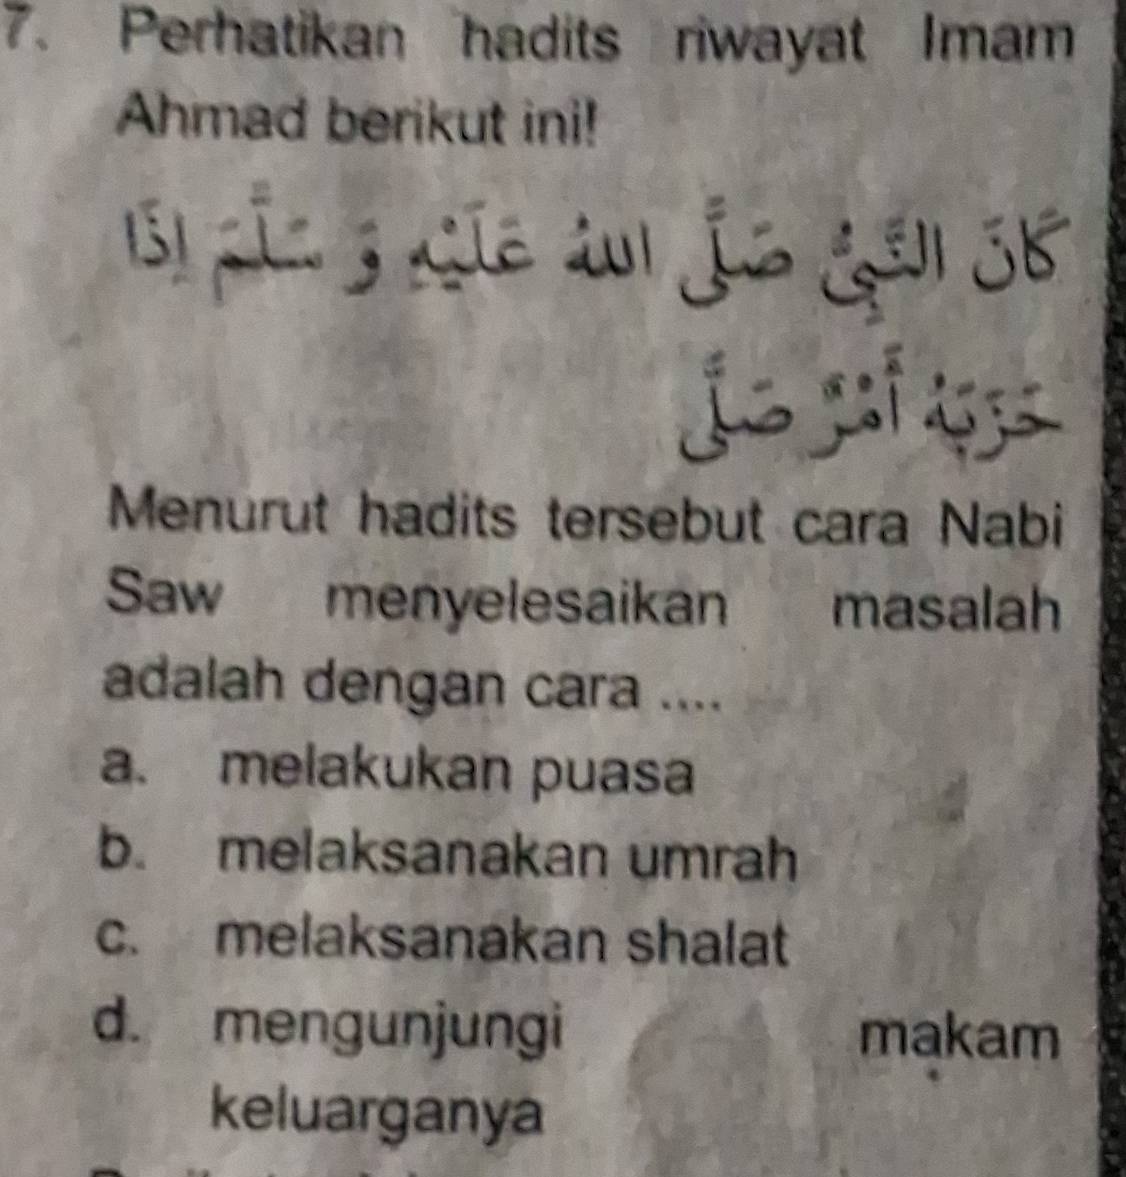 7. Perhatikan hadits riwayat Imam
Ahmad berikut ini!
كَانَ النَّبِيُّ صَلَّى اللهُ عَلَيْهِ وَ سَلَّمَ إِذَا
حَزَبَهُ أَمْرٌ صَلَّى
Menurut hadits tersebut cara Nabi
Saw menyelesaikan masalah
adalah dengan cara ....
a. melakukan puasa
b. melaksanakan umrah
c. melaksanakan shalat
d. mengunjungi makam
keluarganya